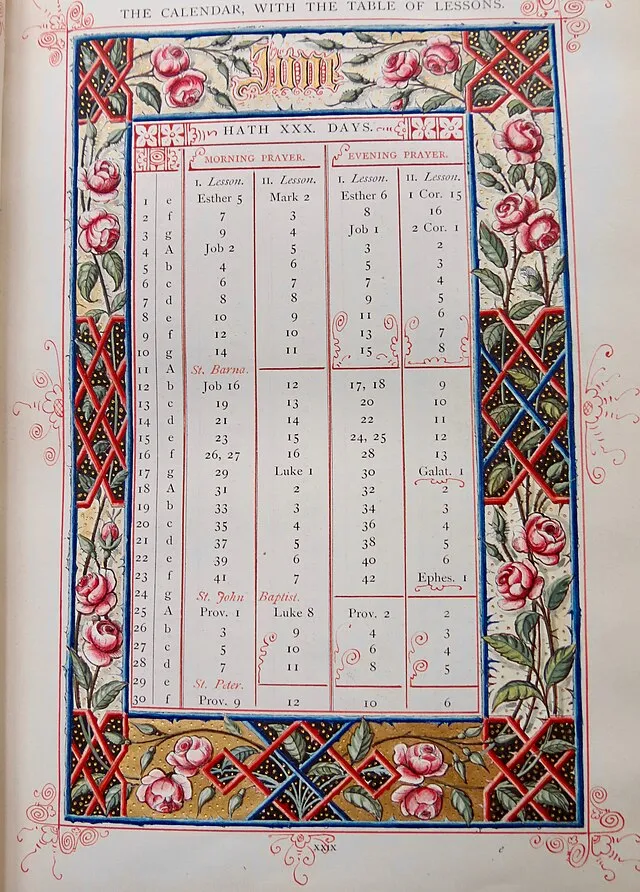 THE CALENDAR, WITH THE TABLE OF LESSONS.
June
HATH XXX. DAYS.
MORNING PRAYER. EVENING PRAYER.
I. Lesson. II. Lesson. I. Lesson. II. Lesson.
1 e Esther 5 Mark 2 Esther 6 1 Cor. 15
2 f 7 3 8 16
3 g 9 4 Job 1 2 Cor. 1
4 A Job 2 5 3 2
5 b 4 6 5 3
6 c 6 7 7 4
7 d 8 8 9 5
8 e 10 9 11 6
9 f 12 10 13 7
10 g 14 11 15 8
11 A St. Barna.
12 b Job 16 12 17, 18 9
13 c 19 13 20 10
14 d 21 14 22 11
15 e 23 15 24, 25 12
16 f 26, 27 16 28 13
17 g 29 Luke 1 30 Galat. 1
18 A 31 2 32 2
19 b 33 3 34 3
20 c 35 4 36 4
21 d 37 5 38 5
22 e 39 6 40 6
23 f 41 7 42 Ephes. 1
24 g St. John Baptist.
25 A Prov. 1 Luke 8 Prov. 2 2
26 b 3 9 4 3
27 c 5 10 6 4
28 d 7 11 8 5
29 e St. Peter.
30 f Prov. 9 12 10 6
XXIX